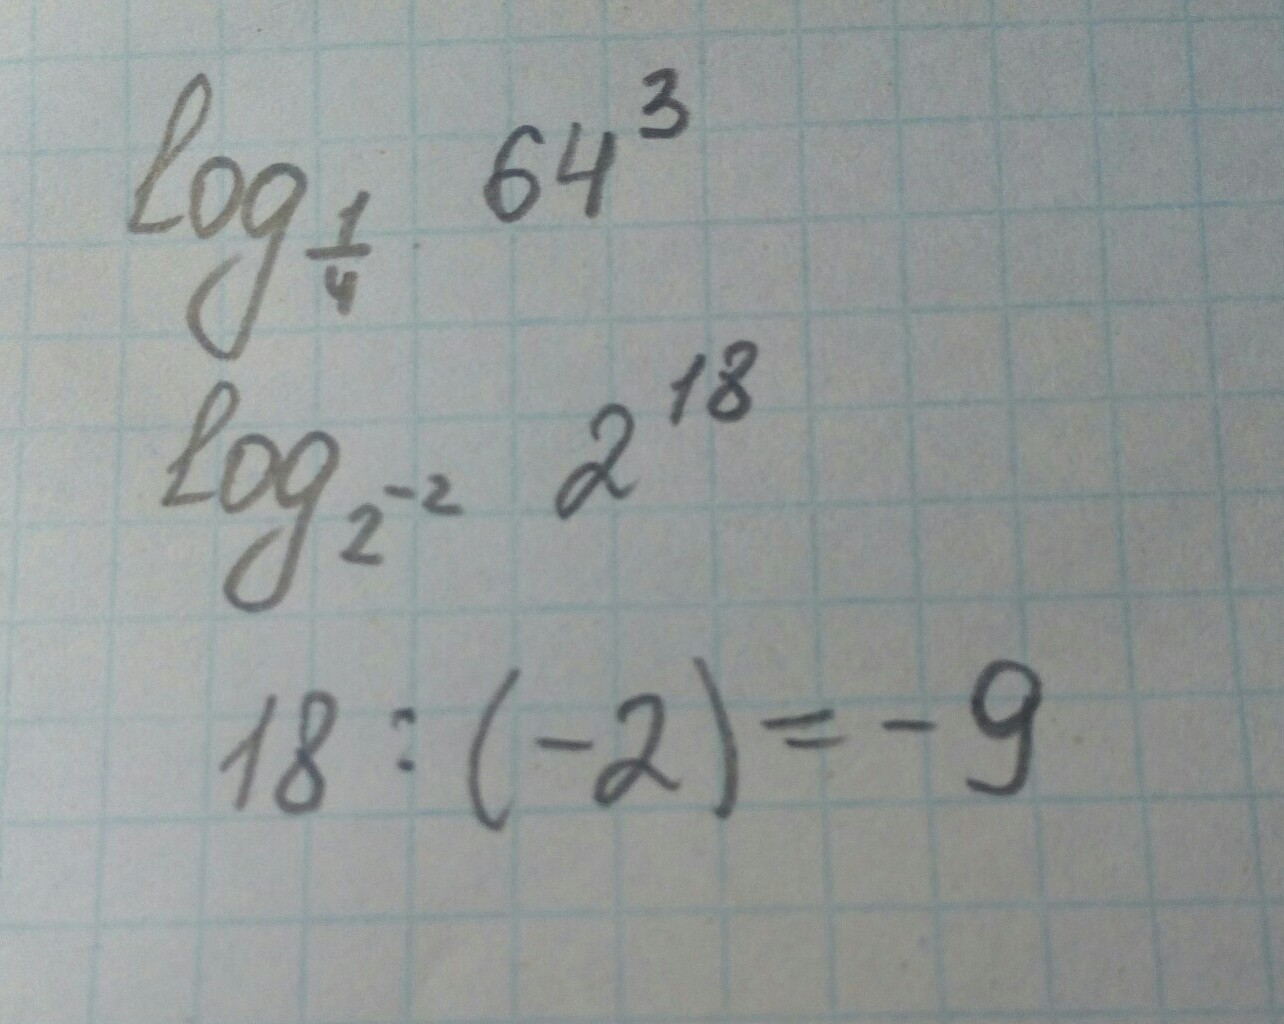 log_{\frac{1}{4}} 64^3
log_{2^{-2}} 2^{18}
18 : (-2) = -9